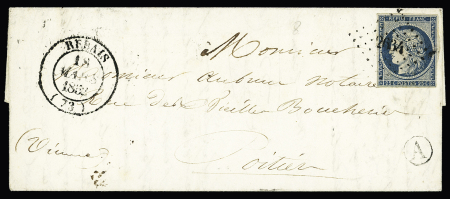 REBAIS
18
MARS
1852
(73)
REPUB FRANC
25 C POSTES 25 C
Monsieur
Monsieur Aubur notaire
Rue des Vieilles Boucheries
(Vienne)
Poitiers
A